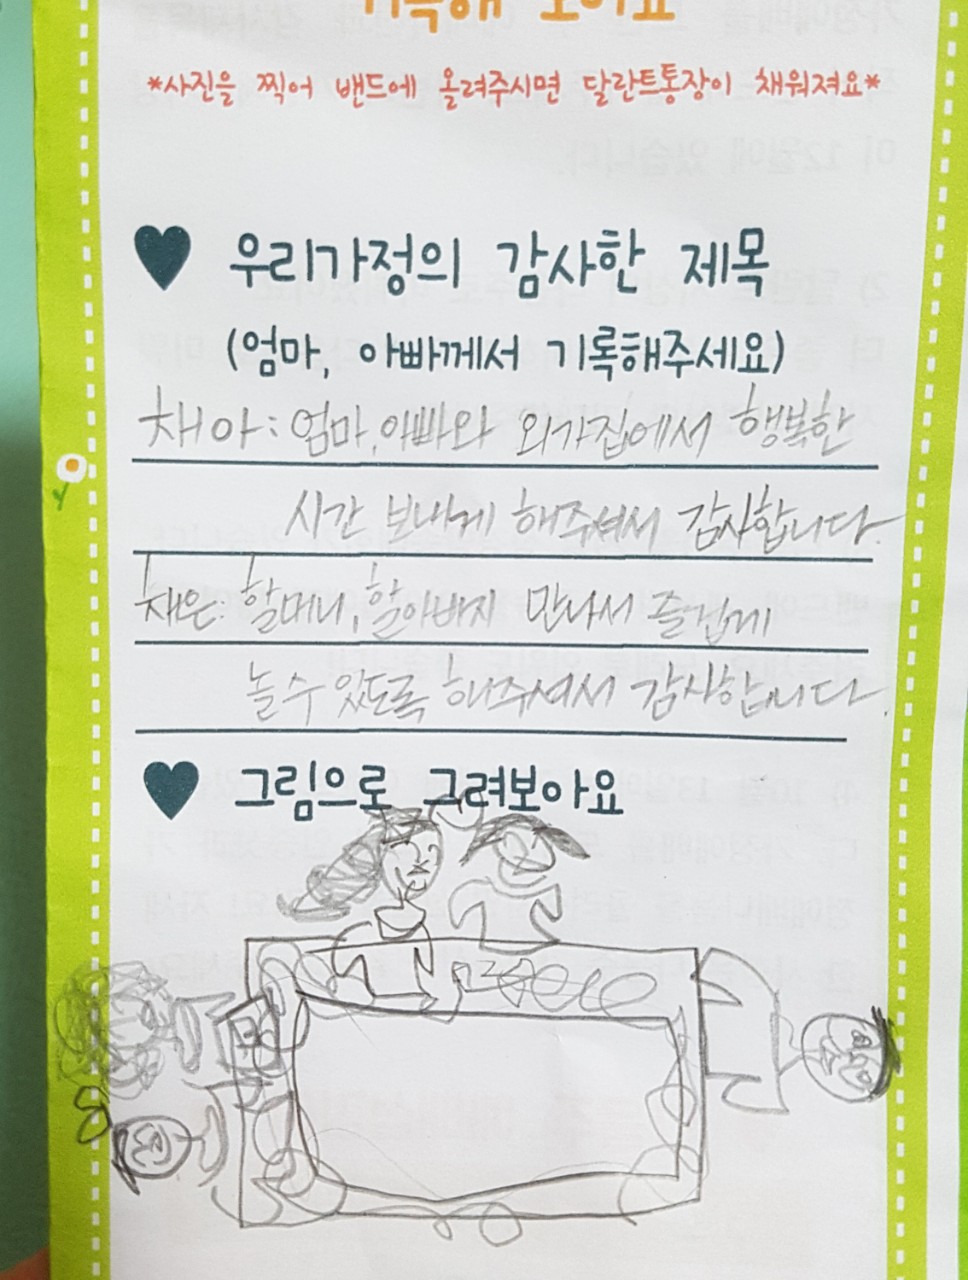 기록해 보아요
*사진을 찍어 밴드에 올려주시면 달란트통장이 채워져요*
♥ 우리가정의 감사한 제목
(엄마, 아빠께서 기록해주세요)
채아: 엄마, 아빠와 외가집에서 행복한
시간 보내게 해주셔서 감사합니다.
채은: 할머니, 할아버지 만나서 즐겁게
놀 수 있도록 해주셔서 감사합니다.
♥ 그림으로 그려보아요